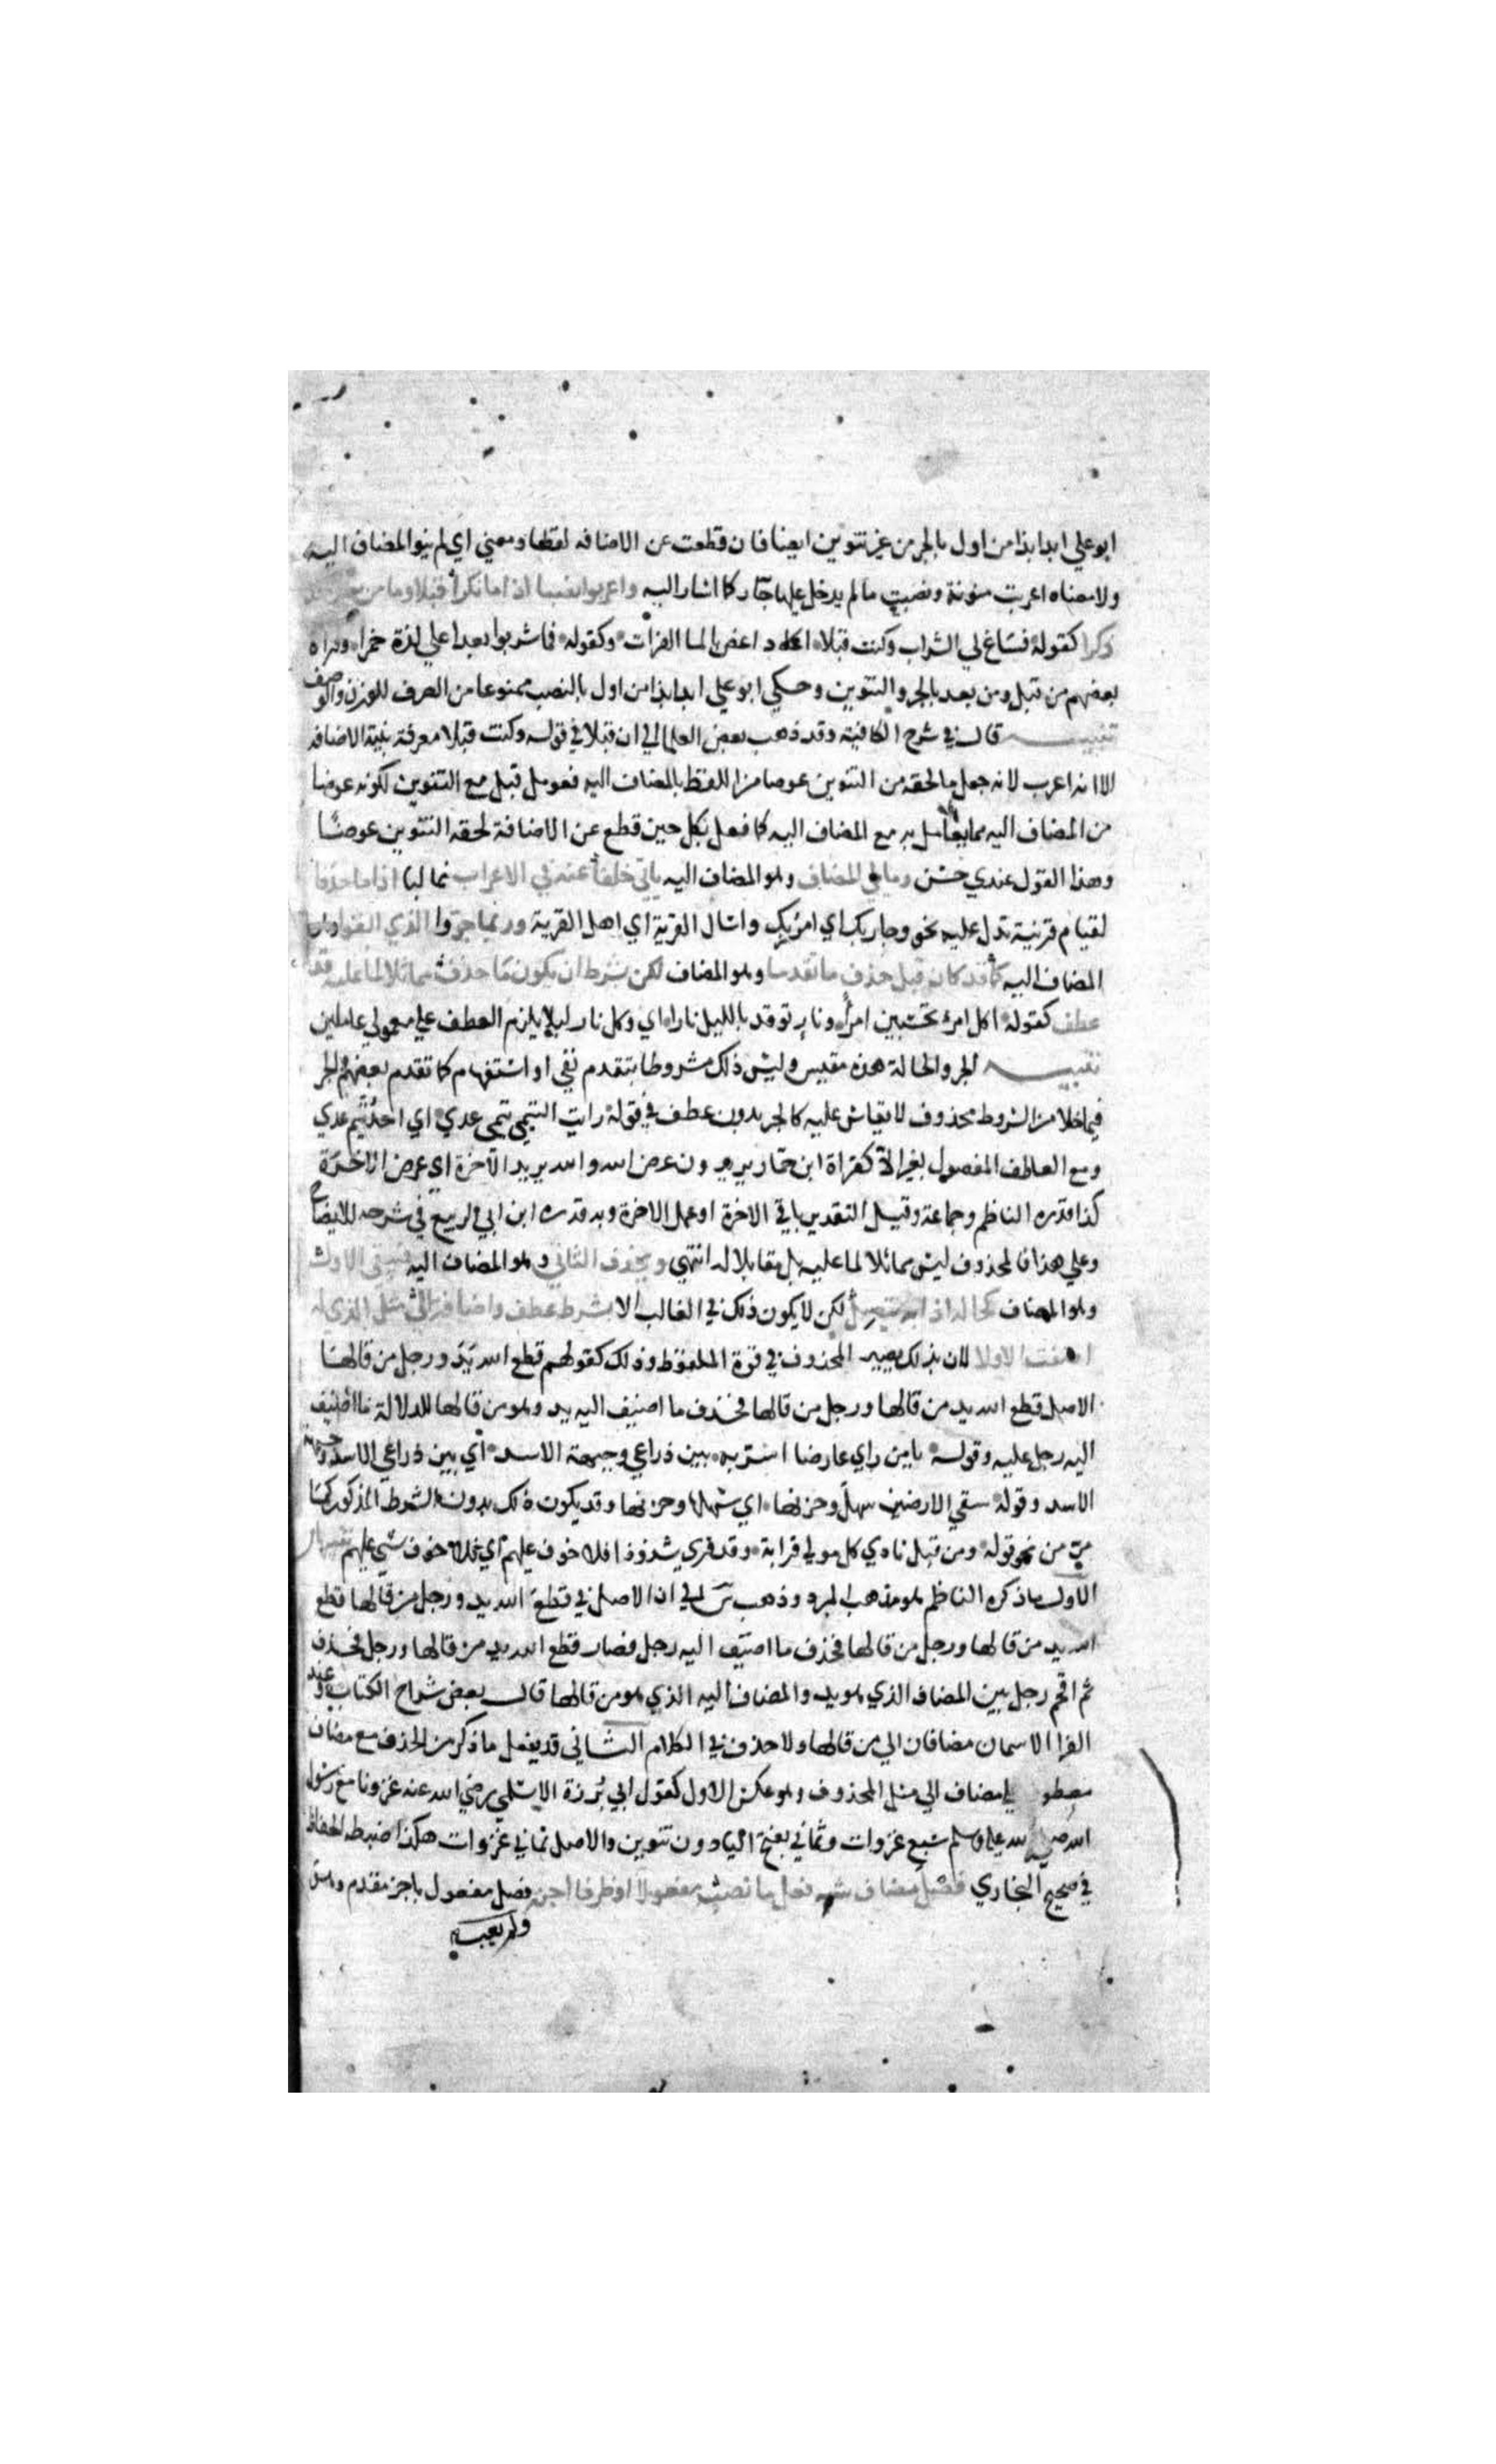 ابو علي ابدا بذا من اول بالجر من غير تنوين ايضا فان قطعت عن الاضافه لفظا ومعني اي لم ينو المضاف اليه
ولا معناه اعربت منونة ونصبت ما لم يدخل عليها جار كما اشار اليه واعربوا نصبا اذا ما نكرا قبلا وما من بعده قد
ذكرا كقوله فساغ لي الشراب وكنت قبلا اكاد اغص بالما الفرات وكقوله فما شربوا بعدا علي لذة خمرا وقراه
بعضهم من قبل ومن بعد بالجر والتنوين وحكي ابو علي ابدا بذا من اول بالنصب ممنوعا من الصرف للوزن والوصف
تنبيه قال في شرح الكافية وقد ذهب بعض العلما الي ان قبلا في قوله وكنت قبلا معرفة بنية الاضافه
الا انه اعرب لانه جعل ما لحقه من التنوين عوضا من اللفظ بالمضاف اليه فعومل قبل مع التنوين لكونه عوضا
من المضاف اليه بما يعامل به مع المضاف اليه كما فعل بكل حين قطع عن الاضافة لحقه التنوين عوضا
وهذا القول عندي حسن وما يلي المضاف وهو المضاف اليه ياتي خلفا عنه في الاعراب غالبا اذا ما حذفا
لقيام قرينة تدل عليه نحو وجا ربك اي امر ربك واسال القرية اي اهل القرية وربما جروا الذي ابقوا وهو
المضاف اليه كما قد كان قبل حذف ما تقدما وهو المضاف لكن بشرط ان يكون ما حذف مماثلا لما عليه قد
عطف كقوله اكل امرئ تحسبين امرأ ونار توقد بالليل نارا اي وكل نار ليلا يلزم العطف علي معمولي عاملين
تنبيه الجر والحالة هذه مقيس وليس ذلك مشروطا بتقدم نفي او استفهام كما تقدم بعضهم والجر
فيما خلا من الشروط محذوف لا يقاس عليه كالجر بدون عطف في قوله رايت التيمي تيم عدي اي احد تيم عدي
ومع العاطف المفصول بغير لا كقراة ابن جماز يريدون عرض الدنيا والله يريد الآخرة اي عرض الاخرة
كذا قدره الناظم وجماعة وقيل التقدير باقي الاخرة او عمل الاخرة وبه قدره ابن ابي الربيع في شرحه للايضاح
وعلي هذا فالمحذوف ليس مماثلا لما عليه بل مقابلا له انتهي ويحذف الثاني وهو المضاف اليه فيبقي الاول
وهو المضاف كحاله اذا به يتصل لكن لا يكون ذلك في الغالب الا بشرط عطف واضافة الي مثل الذي له
اضفت الاولا لان بذلك يصير المحذوف في قوة الملفوظ وذلك كقولهم قطع الله يد ورجل من قالها
الاصل قطع الله يد من قالها ورجل من قالها فحذف ما اضيف اليه يد وهو من قالها لدلالة ما اضيف
اليه رجل عليه وقوله يا من راي عارضا اسر به بين ذراعي وجبهة الاسد اي بين ذراعي الاسد وجبهة
الاسد وقوله سقي الارضين سهل وحزنها اي سهلها وحزنها وقد يكون ذلك بدون الشرط المذكور كما
مر من نحو قوله ومن قبل نادي كل مولي قرابة وقد قري شذوذا فلا خوف عليهم اي فلا خوف شي عليهم تنبيهان
الاول ما ذكره الناظم هو مذهب المبرد وذهب س الي ان الاصل في قطع الله يد ورجل من قالها قطع
الله يد من قالها ورجل من قالها فحذف ما اضيف اليه رجل فصار قطع الله يد من قالها ورجل فحذف
ثم اقحم رجل بين المضاف الذي هو يد والمضاف اليه الذي هو من قالها قال بعض شراح الكتاب وعند
الفرا الاسمان مضافان الي من قالها ولا حذف في الكلام الثاني قد يفعل ما ذكر من الحذف مع مضاف
معطو لي مضاف الي مثل المحذوف وهو عكس الاول كقول ابي برزة الاسلمي رضي الله عنه غزونا مع رسول
الله صلي الله عليه وسلم سبع غزوات وثماني بفتح الياء دون تنوين والاصل ثماني غزوات هكذا ضبطه الحفاظ
في صحيح البخاري فصل مضاف شبه فعل ما نصب مفعولا او ظرفا اجز فصل مفعول باجز مقدم وهو
ولم يعب